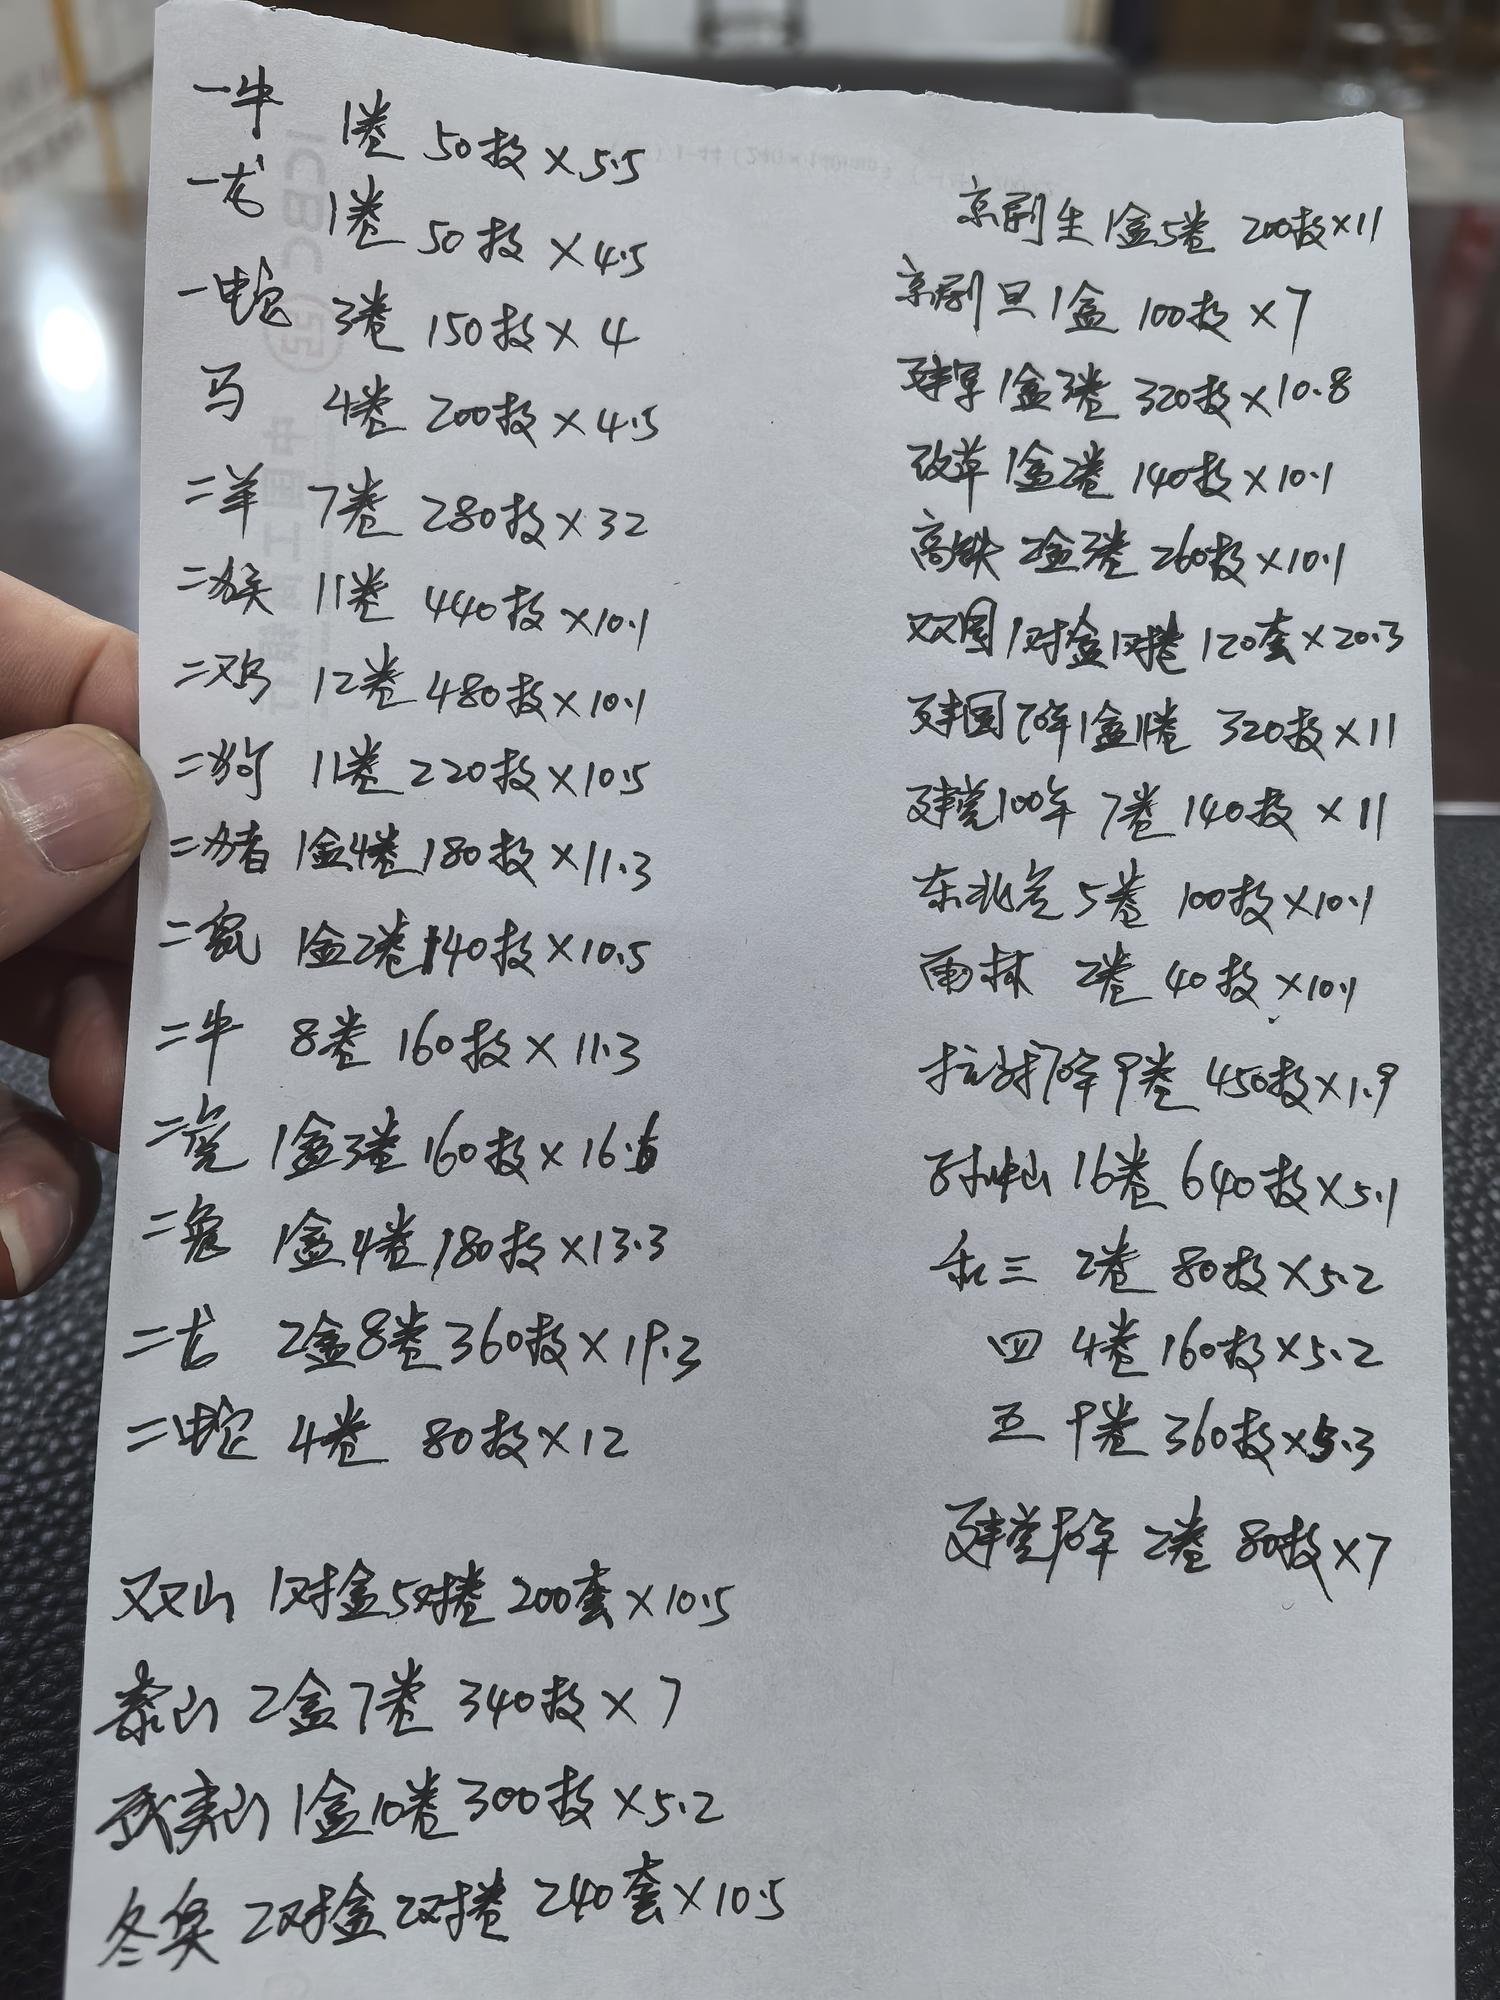 一牛 1卷 50枚×5.5
一龙 1卷 50枚×4.5
一蛇 3卷 150枚×4
马 4卷 200枚×4.5
二羊 7卷 280枚×32
二猴 11卷 440枚×10.1
二鸡 12卷 480枚×10.1
二狗 11卷 220枚×10.5
二猪 1盒4卷 180枚×11.3
二鼠 1盒2卷 140枚×10.5
二牛 8卷 160枚×11.3
二虎 1盒3卷 160枚×16.6
二兔 1盒4卷 180枚×13.3
二龙 2盒8卷 360枚×19.3
二蛇 4卷 80枚×12
双山 1对盒5对卷 200套×10.5
泰山 2盒7卷 340枚×7
武夷山 1盒10卷 300枚×5.2
冬奥 2对盒2对卷 240套×10.5
京剧生 1盒5卷 200枚×11
京剧旦 1盒 100枚×7
建军 1盒3卷 320枚×10.8
改革 1盒2卷 140枚×10.1
高铁 2盒3卷 260枚×10.1
双国 1对盒1对卷 120套×20.3
建国70年 1盒11卷 320枚×11
建党100年 7卷 140枚×11
东北虎 5卷 100枚×10.1
雨林 2卷 40枚×10.1
抗战70年 9卷 450枚×1.9
孙中山 16卷 640枚×5.1
和三 2卷 80枚×5.2
四 4卷 160枚×5.2
五 9卷 360枚×5.3
建党90年 2卷 80枚×7
ICBC
中国工商银行